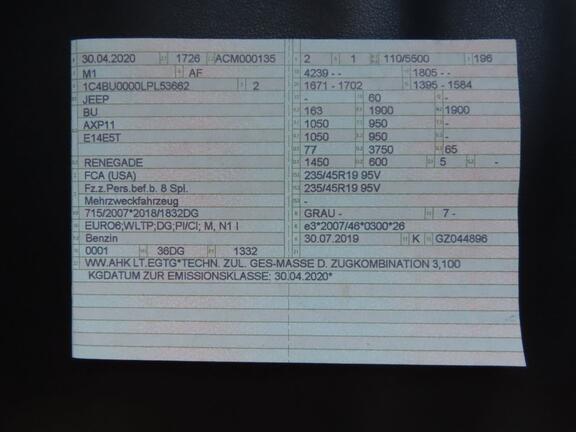 30.04.2020 1726 ACM000135
M1 AF
1C4BU0000LPL53662 2
JEEP
BU
AXP11
E14E5T
RENEGADE
FCA (USA)
Fz.z.Pers.bef.b. 8 Spl.
Mehrzweckfahrzeug
715/2007*2018/1832DG
EURO6;WLTP;DG;PI/CI; M, N1 I
Benzin
0001 36DG 1332
2 1 110/5500 196
4239 - - 1805 - -
1671 - 1702 1395 - 1584
- 60 -
163 1900 1900
1050 950 -
1050 950 -
77 3750 65
1450 600 5 -
235/45R19 95V
235/45R19 95V
-
GRAU - 7 -
e3*2007/46*0300*26
30.07.2019 K GZ044896
WW.AHK LT.EGTG*TECHN. ZUL. GES-MASSE D. ZUGKOMBINATION 3,100
KGDATUM ZUR EMISSIONSKLASSE: 30.04.2020*